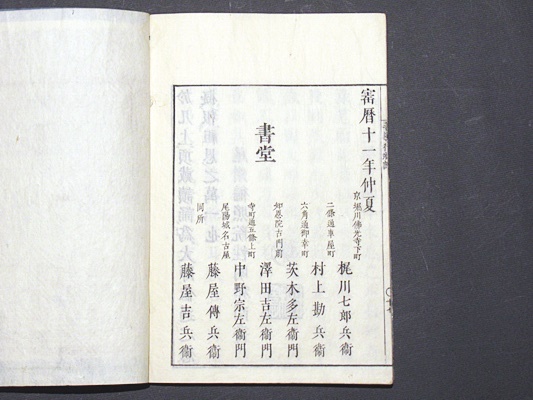 寳暦十一年仲夏
京堀川佛光寺下町
梶川七郎兵衞
二條通車屋町
村上勘兵衞
六角通御幸町
茨木多左衞門
知恩院古門前
澤田吉左衞門
寺町通五條上町
中野宗左衞門
尾陽城名古屋
藤屋傳兵衞
同所
藤屋吉兵衞
書堂